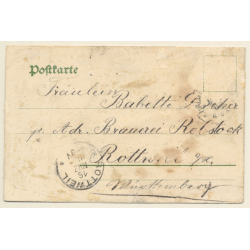 Postkarte
Fräulein
Babette
pr. Adr. Brauerei Rebstock
Rottweil
Württemberg
ROTTWEIL